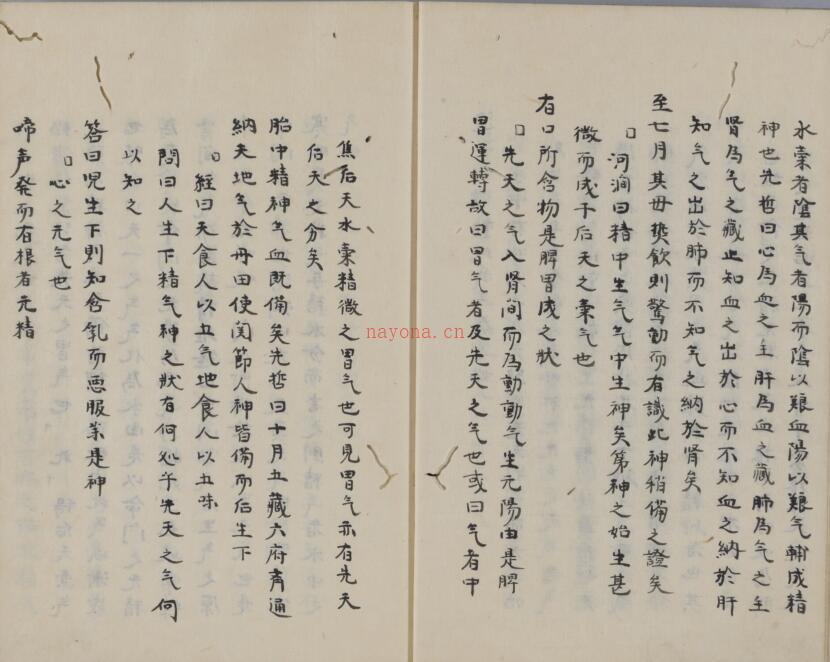 水稟者陰其气者陽而陰以艱血陽以艱气輔成精
神也先哲曰心為血之主肝為血之藏肺為气之主
腎為气之藏止知血之出於心而不知血之納於肝
知气之出於肺而不知气之納於腎矣
至七月其母熱飲則驚動而有識此神稍備之證矣
河澗曰精中生气气中生神矣第神之始生甚
微而成于后天之稟气也
有口所含物是脾胃成之狀
先天之气入腎間而為動動气生元陽由是脾
胃運轉故曰胃气者及先天之气也或曰气者中
焦后天水稟精微之胃气也可見胃气亦有先天
后天之分矣
胎中精神气血既備矣先哲曰十月五藏六府齊通
納天地气於丹田使関節人神皆備而后生下
經曰天食人以五气地食人以五味
問曰人生下精气神之狀有何処乎先天之气何
以知之
答曰児生下則知含乳而悪服薬是神
心之元气也
啼声発而有根者元精
nayona.cn